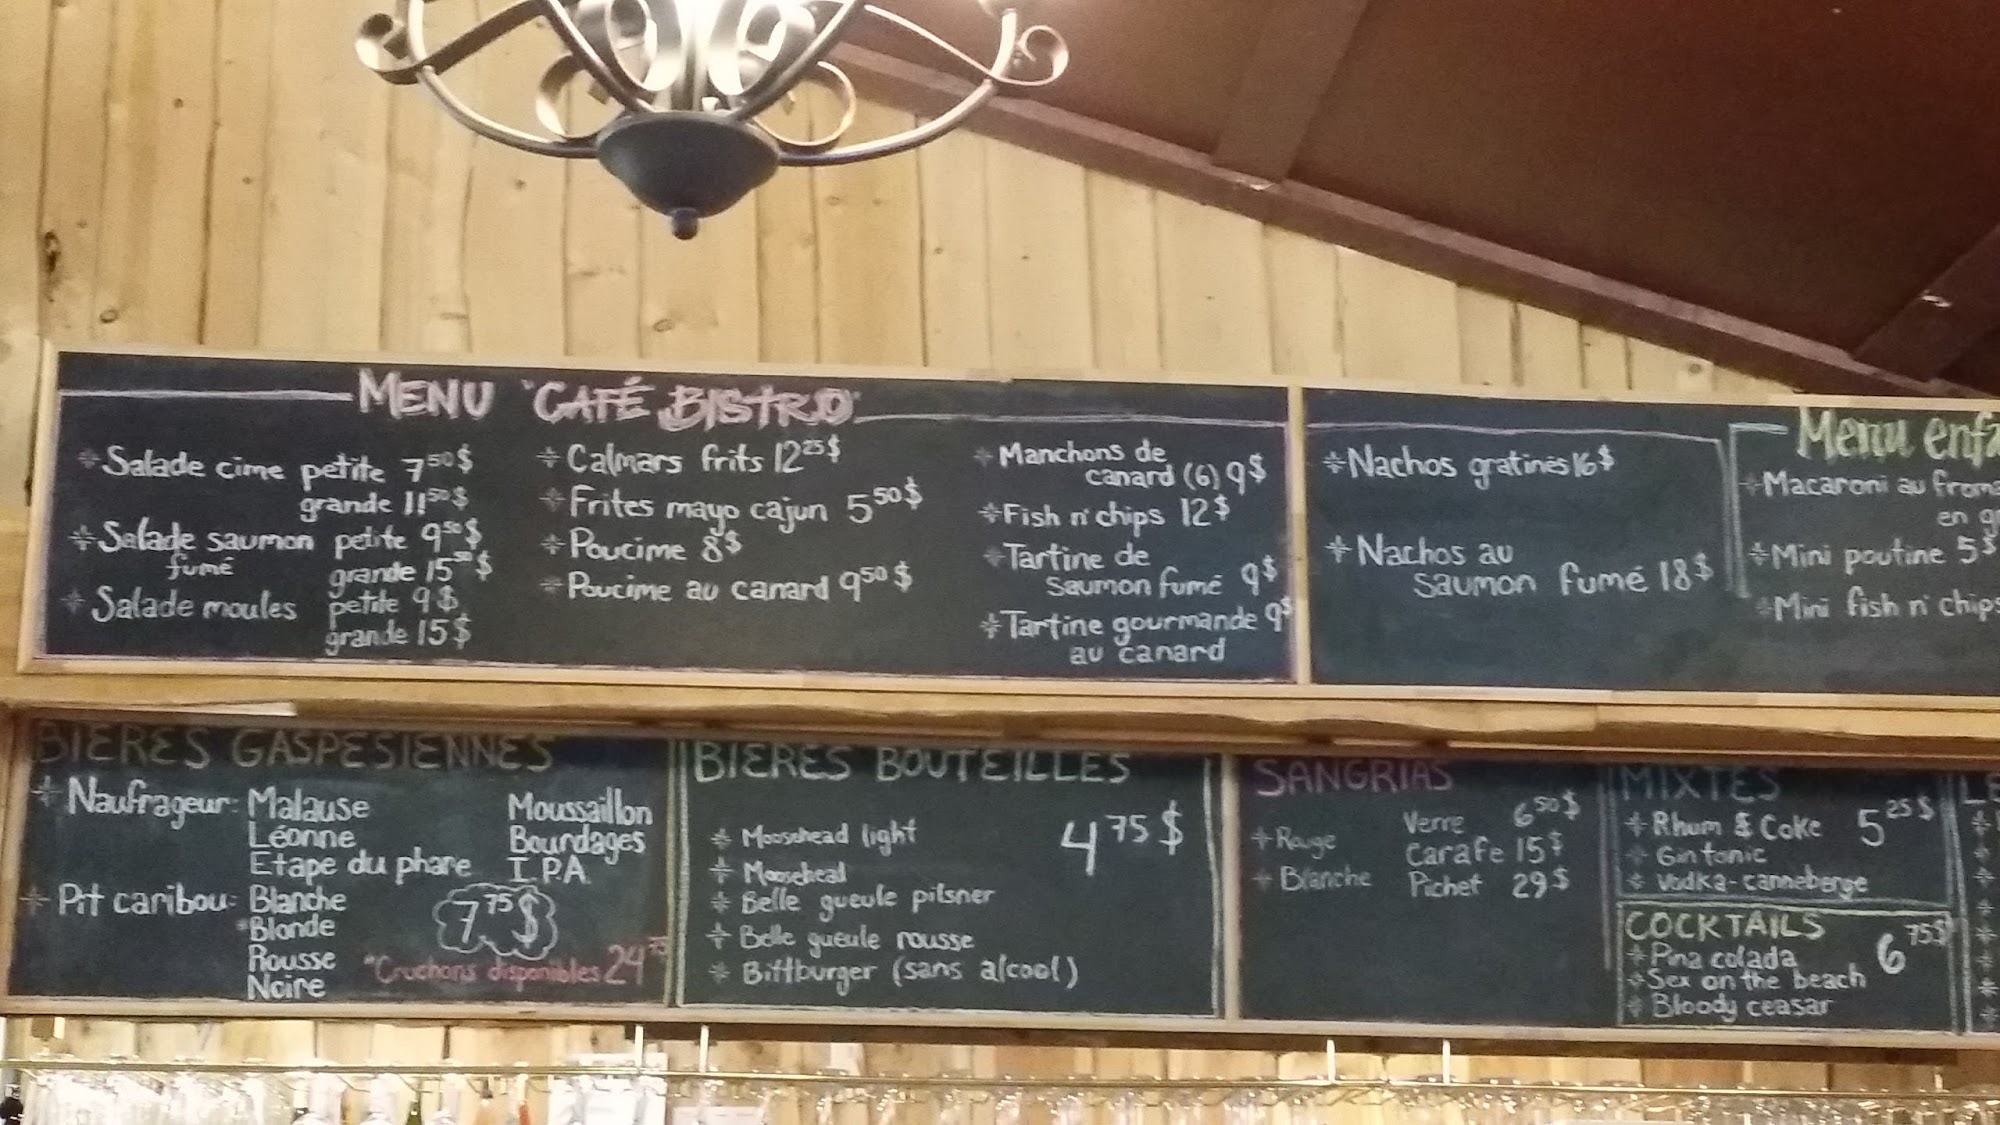 MENU "CAFÉ BISTRO"
Salade cime petite 7 50 $
grande 11 50 $
Salade saumon petite 9 50 $
fumé grande 15 50 $
Salade moules petite 9 $
grande 15 $
Calmars frits 12 25 $
Frites mayo cajun 5 50 $
Poucime 8 $
Poucime au canard 9 50 $
Manchons de
canard (6) 9 $
Fish n' chips 12 $
Tartine de
Saumon fumé 9 $
Tartine gourmande 9 $
au canard
Nachos gratinés 16 $
Nachos au
Saumon fumé 18 $
Menu enfa
Macaroni au froma
en g
Mini poutine 5 $
Mini fish n' chips
BIÈRES GASPÉSIENNES
Naufrageur: Malause Moussaillon
Léonne Bourdages
Etape du phare I.P.A.
Pit caribou: Blanche
*Blonde 7 75 $
Rousse
Noire
*Cruchons disponibles 24 75
BIÈRES BOUTEILLES
4 75 $
Moosehead light
Moosehead
Belle gueule pilsner
Belle gueule rousse
Bittburger (sans alcool)
SANGRIAS
Rouge
Blanche
Verre 6 50 $
Carafe 15 $
Pichet 29 $
MIXTES
Rhum & Coke 5 25 $
Gin tonic
Vodka-canneberge
COCKTAILS
6 75 $
Pina colada
Sex on the beach
Bloody ceasar